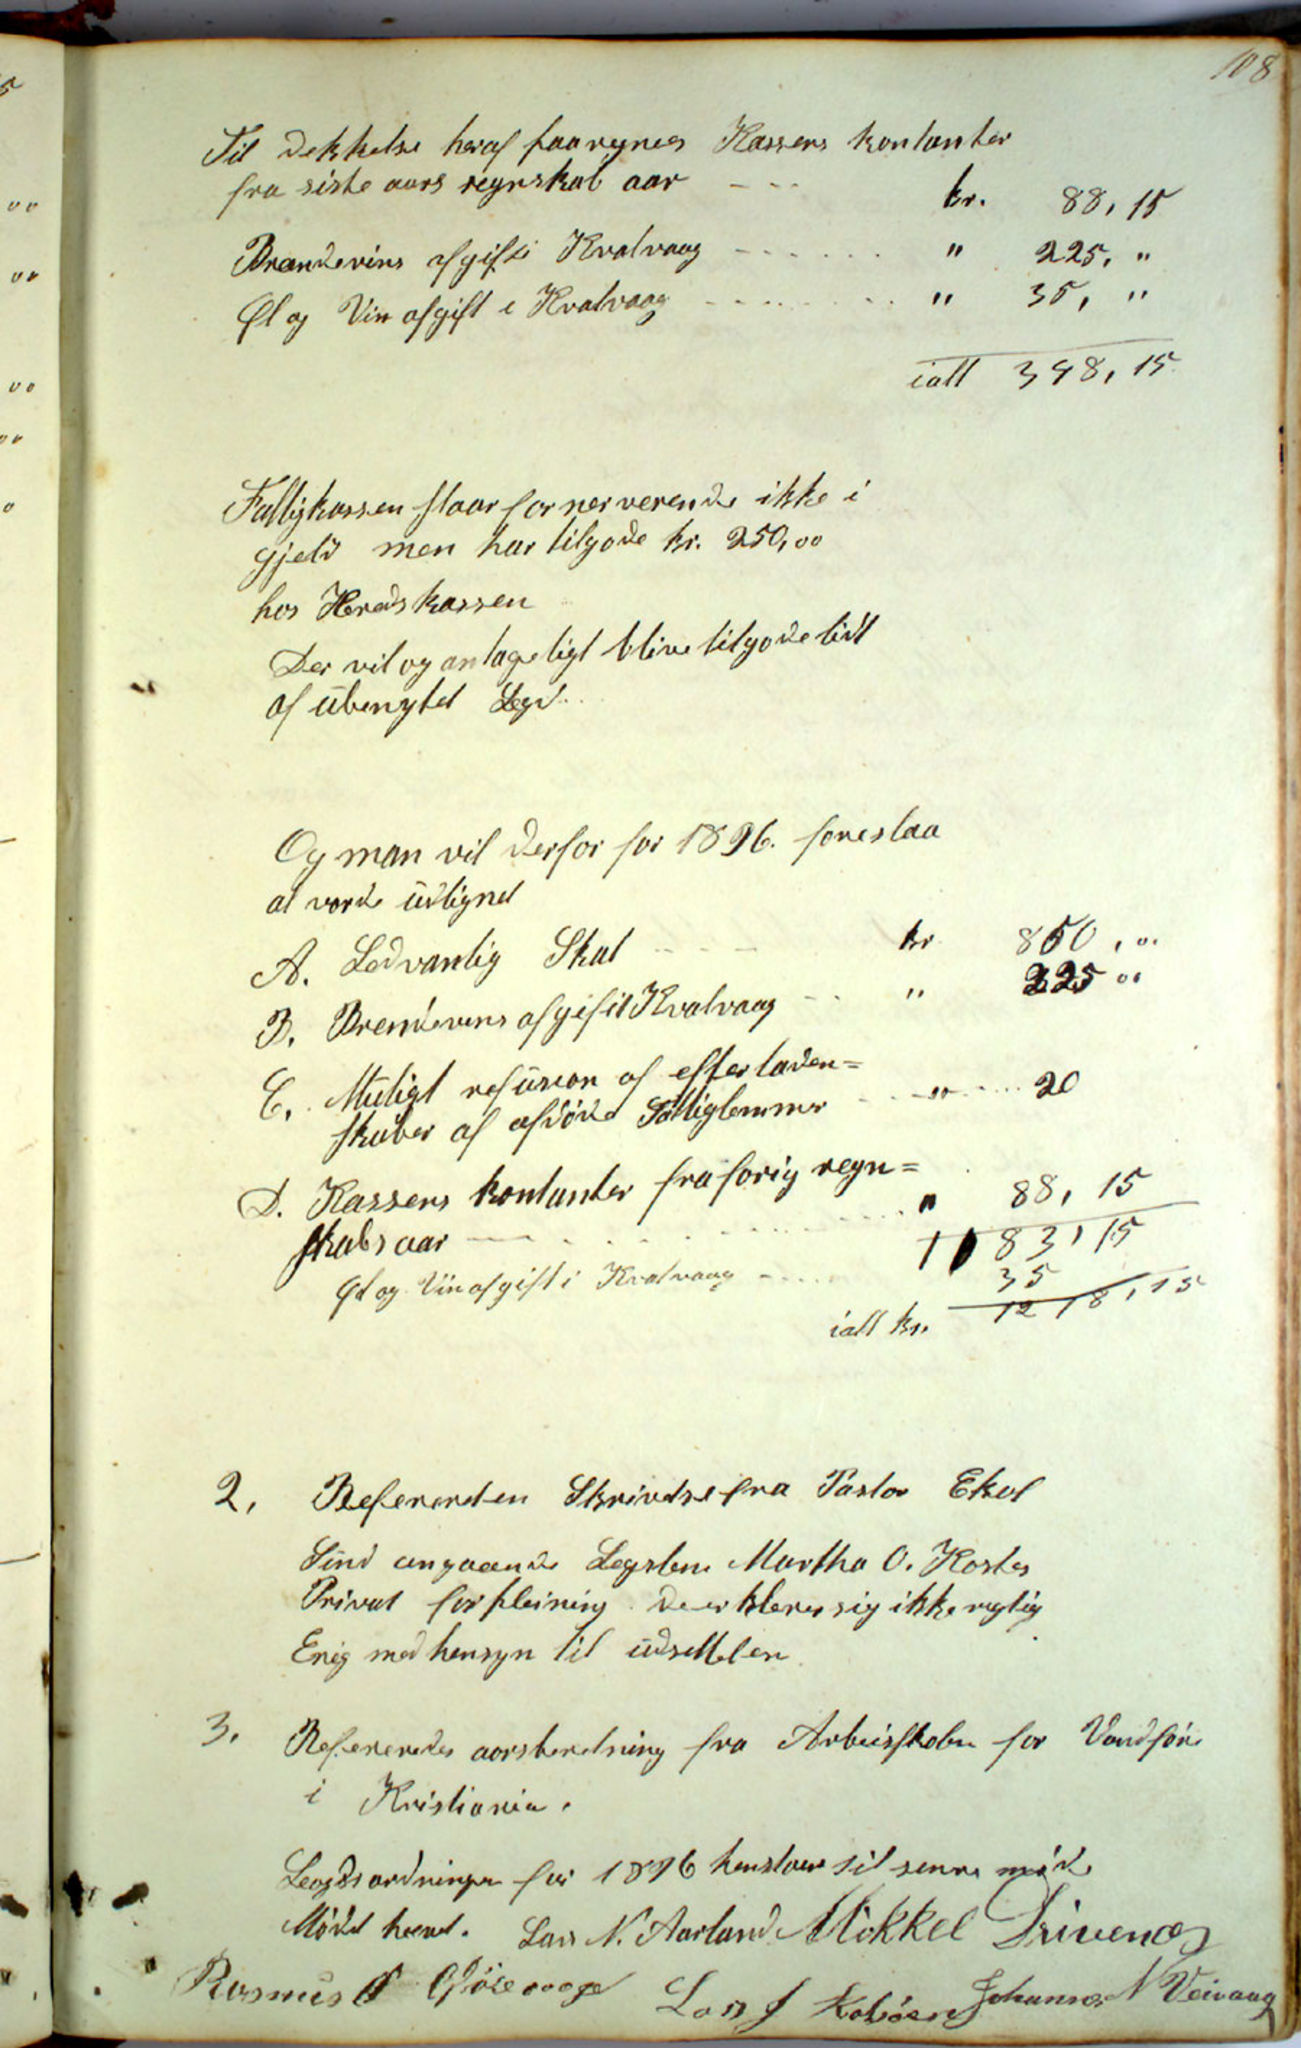 108
Til Dekkelse heraf paaregnes Kassens kontanter
fra siste aars regnskab aar - - - kr. 88,15
Brændevins afgift i Kvalvaag - - - - - - " 225, "
Øl og Vin afgift i Kvalvaag - - - - - - - - " 35, "
ialt 348,15
Fattigkassen staar for nerverende ikke i
gjeld men har tilgode kr. 250,00
hos Heredskassen
Der vil og antageligt blive tilgode lidt
af ubenyttet Legd.
Og man vil derfor for 1896. foreslaa
at vorde udlignet
A. Sedvanlig Skat - - - - kr 850,00
B. Brendevins afgift i Kvalvaag - - " 225 00
C. Muligt refusion af efterladen=
skaber af afdøde Fattiglemmer - - - " - - - 20
D. Kassens kontanter fra forig regn=
skabs aar - - - - - - - " 88, 15
1183,15
Øl og Vin afgift i Kvalvaag - - - - 35
ialt kr. 1218,15
2. Refereret en Skrivelse fra Pastor
Sund angaaende Legslem Martha O.
Privat forpleining de erklerer sig ikke rigtig
Enig med hensyn til udsettelsen
3. Refereredes aarsberetning fra Arbeisskolen for Vandføre
i Kristiania.
Legdsordningen for 1896 henstaar til senere møde
Mødet hævet. Lars N. Aarland Mikkel Drivenes
Rasmus Lars J Johannes N Veivaag